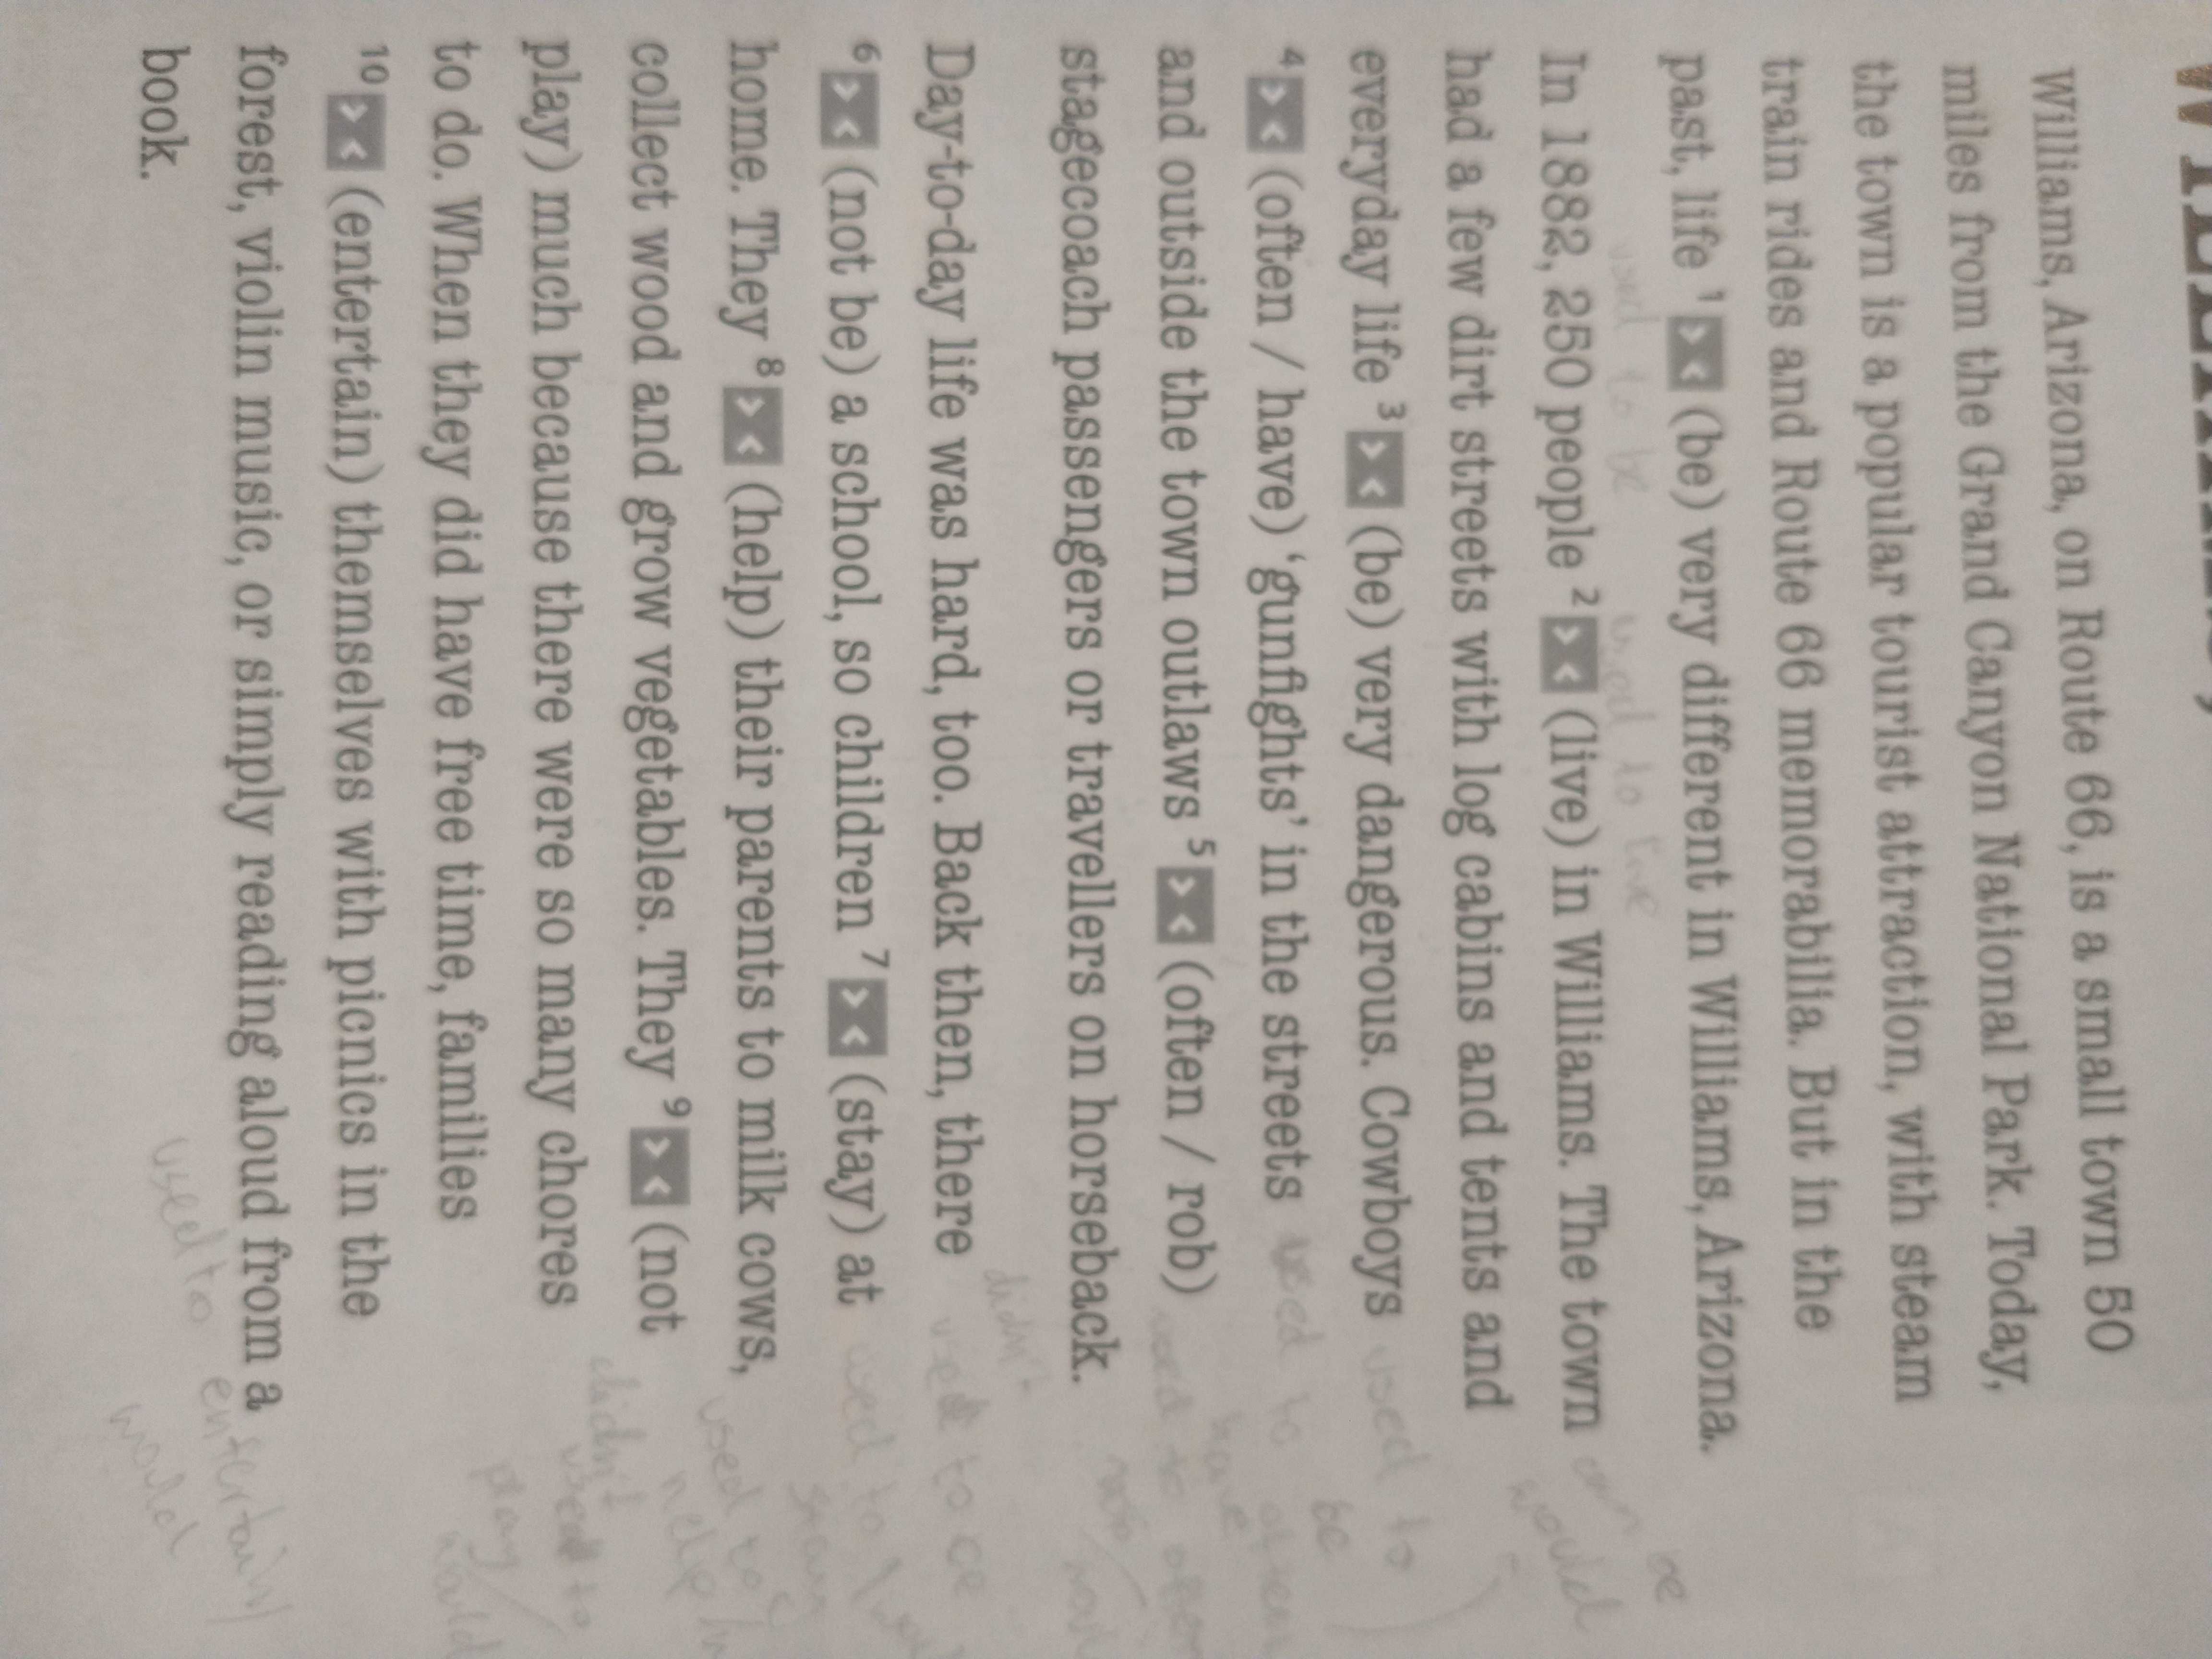 Williams, Arizona, on Route 66, is a small town 50
miles from the Grand Canyon National Park. Today,
the town is a popular tourist attraction, with steam
train rides and Route 66 memorabilia. But in the
past, life 1 (be) very different in Williams, Arizona.
used to be used to live
In 1882, 250 people 2 (live) in Williams. The town
had a few dirt streets with log cabins and tents and
would
everyday life 3 (be) very dangerous. Cowboys
used to be
4 (often / have) ‘gunfights’ in the streets
used to often have
and outside the town outlaws 5 (often / rob)
used to often
stagecoach passengers or travellers on horseback.
Day-to-day life was hard, too. Back then, there
didn't used to be
6 (not be) a school, so children 7 (stay) at
used to
home. They 8 (help) their parents to milk cows,
used to help
collect wood and grow vegetables. They 9 (not
didn't used to
play) much because there were so many chores
play / would
to do. When they did have free time, families
10 (entertain) themselves with picnics in the
forest, violin music, or simply reading aloud from a
used to entertain /
would
book.